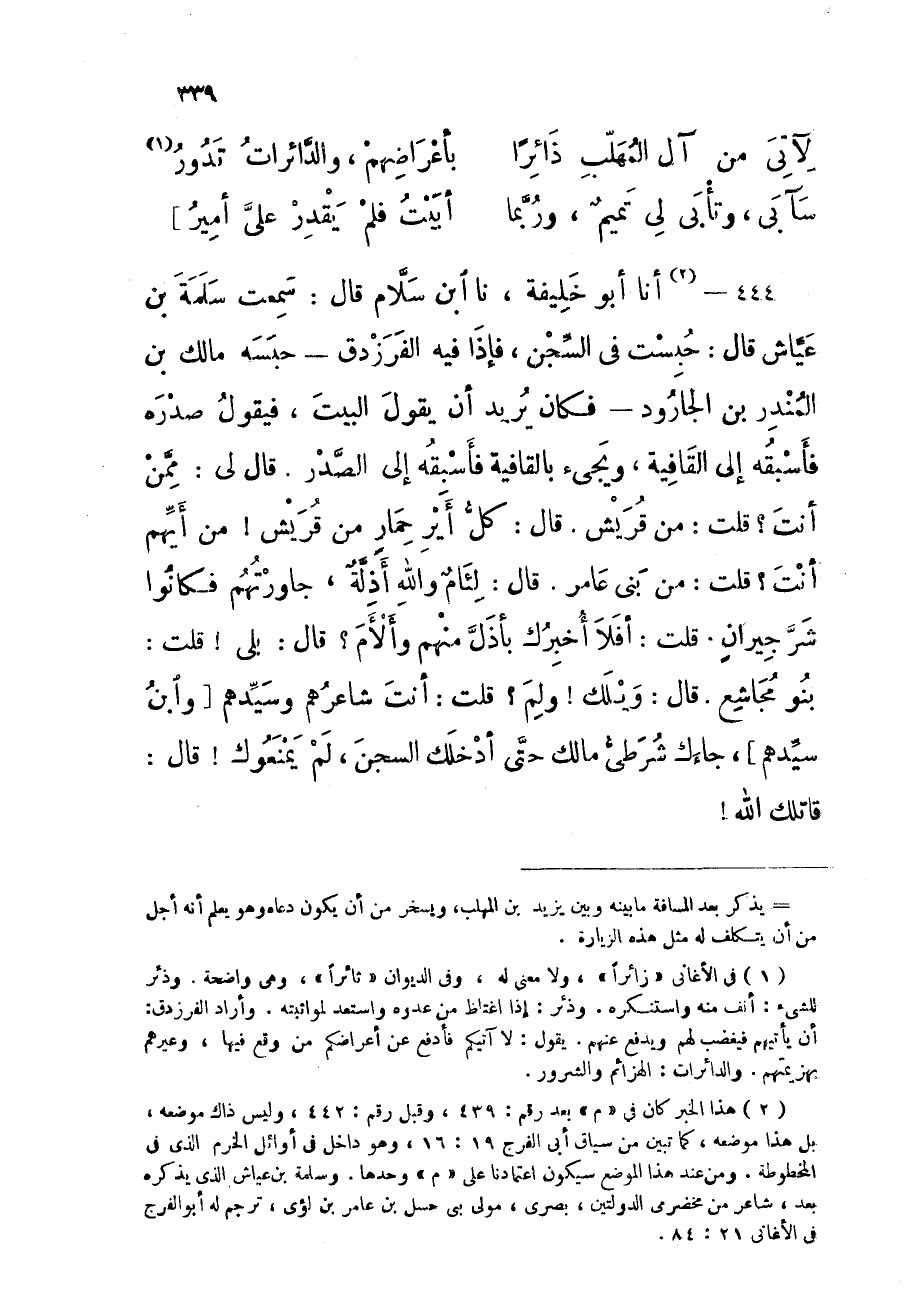 ٣٣٩
لِآتِىَ من آل المُهَلّبِ ذَائِرًا بأعْرَاضِهِمْ ، والدَّائرات ُ تَدُورُ(١)
سَآبَى ، وتأْبَى لِى تَمِيم ٌ ، ورُبَّما أبَيْتُ فلمْ يَقْدِرْ علىَّ أمِيرُ ]
٤٤٤ — (٢) أنا أبو خَلِيفة ، نا ابن سَلَّام قال : سَمِعت سَلَمَةَ بن
عَيَّاش قال : حُبِسْت فى السِّجْن ، فإذَا فيه الفَرَزْدق — حبَسَه مالك بن
المُنْذِر بن الجارُود — فكان يُريد أن يقولَ البيتَ ، فيقولُ صدْرَه
فأسْبقُه إلى القَافِية ، ويَجىء بالقافية فأَسْبِقُه إلى الصَّدْر . قال لى : مِمَّنْ
أنتَ ؟ قلت : من قُرَيْش . قال : كلُّ أَيْرِ حِمَارٍ من قُرَيْش ! من أَيِّهم
أنْتَ ؟ قلت : من بَنى عَامر . قال : لِئَام ٌ واللهِ أَذِلَّة ٌ ، جاورْتُهُم فكانُوا
شَرَّ جيرانٍ . قلت : أفَلَا أُخبِرُك بأذَلَّ منْهم وأَلْأَمَ ؟ قال : بلى ! قلت :
بنُو مُجَاشِع . قال : وَيْلَك ! ولِمَ ؟ قلت : أنتَ شاعرُهم وسَيِّدهم [ وابنُ
سيِّدهم ] ، جاءك شُرَطىُّ مالك حتَّى أدْخلَك السجنَ ، لَمْ يَمْنَعُوك ! قال :
قاتلك الله !
= يذكر بعد المسافة مابينه وبين يزيد بن المهلب، ويسخر من أن يكون دعاه وهو يعلم أنه أجل
من أن يتكلف له مثل هذه الزيارة .
( ١ ) فى الأغانى « زائراً » ، ولا معنى له ، وفى الديوان « ثائراً » ، وهى واضحة . وذئر
للشىء : أنف منه واستنكره . وذئر : إذا اغتاظ من عدوه واستعد لمواثبته . وأراد الفرزدق:
أن يأتيهم فيغضب لهم ويدفع عنهم . يقول : لا آتيكم فأدفع عن أعراضكم من وقع فيها ، وعيرهم
بهزيمتهم . والدائرات : الهزائم والشرور .
( ٢ ) هذا الخبر كان فى « م » بعد رقم : ٤٣٩ ، وقبل رقم : ٤٤٢ ، وليس ذاك موضعه ،
بل هذا موضعه ، كما تبين من سياق أبى الفرج ١٩ : ١٦ ، وهو داخل فى أوائل الخرم الذى فى
المخطوطة . ومن عند هذا الموضع سيكون اعتمادنا على « م » وحدها . وسلمة بن عياش الذى يذكره
بعد ، شاعر من مخضرمى الدولتين ، بصرى ، مولى بنى حسل بن عامر بن لؤى ، ترجم له أبوالفرج
فى الأغانى ٢١ : ٨٤ .